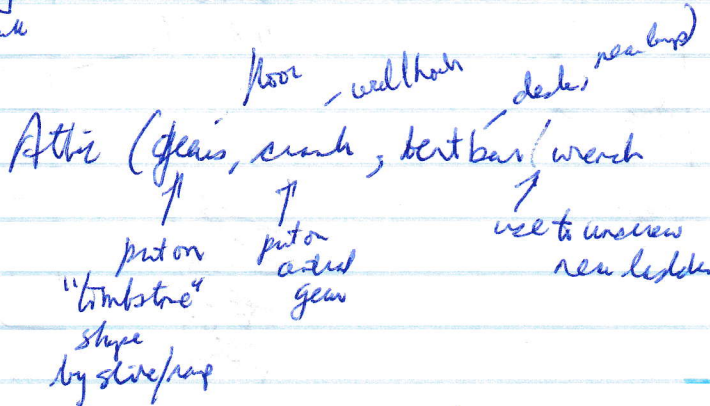 floor
wall hook
desk,
near lamp)
Attic (gears, crank, bent bar/wrench
put on
"tombstone"
shape
by slide/ramp
put on
central
gear
use to unscrew
near ladder